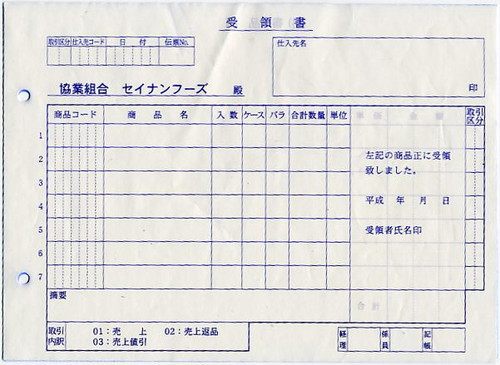 受領書
取引区分 仕入先コード 日付 伝票No.
仕入先名
印
協業組合 セイナンフーズ 殿
商品コード 商品名 入数 ケース バラ 合計数量 単位 単価 金額 取引区分
1
2
3
4
5
6
7
左記の商品正に受領
致しました。
平成 年 月 日
受領者氏名印
摘要
合計
取引内訳 01：売上 02：売上返品
03：売上値引
経理 係員 記帳